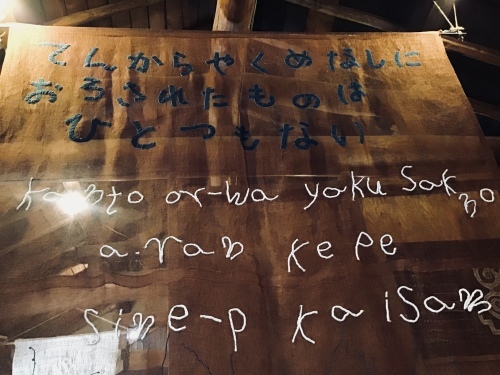 てんからやくめなしに
おろされたものは
ひとつもない
kanto or-wa yaku Sak no
a-ran ke pe
sine-p ka isam